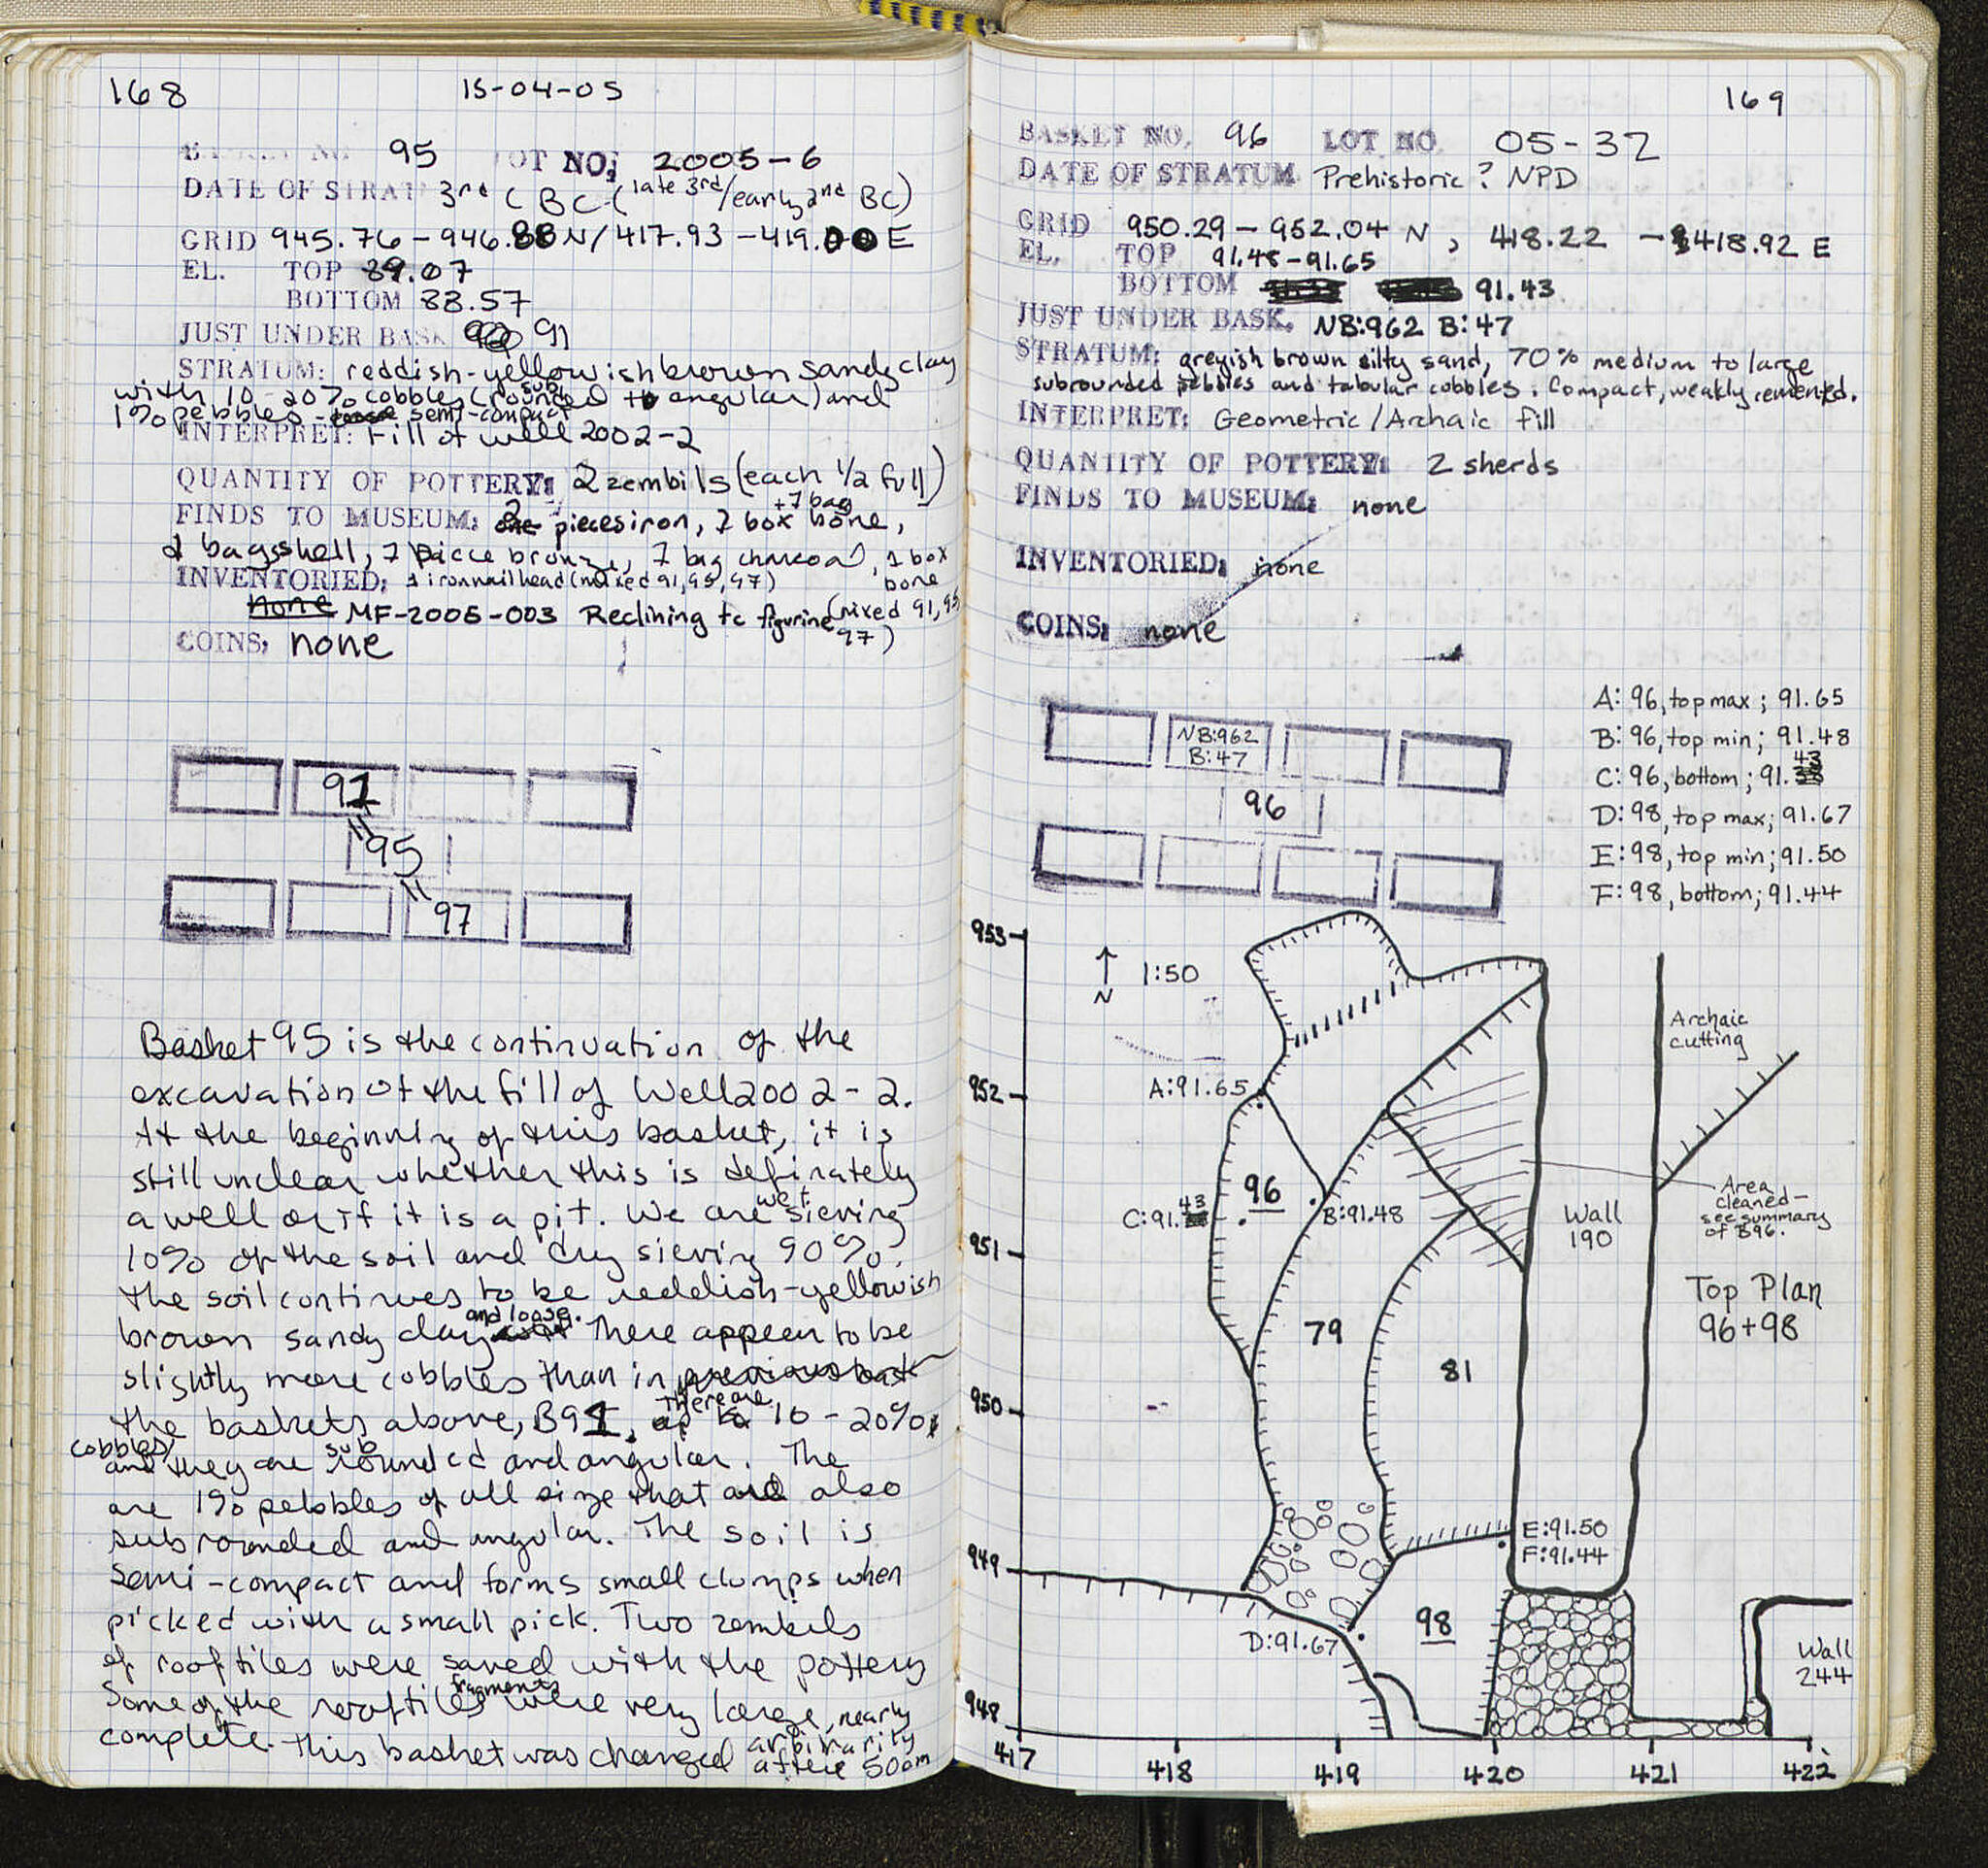 168
15-04-05
95 OT NO. 2005-6
DATE OF STRAT 3rd C BC (late 3rd/early 2nd BC)
GRID 945.76-946.88N/417.93-419.00E
EL. TOP 89.07
BOTTOM 88.57
JUST UNDER BASK 91
STRATUM: reddish-yellowish brown sandy clay
with 10-20% cobbles (subrounded to angular) and
1% pebbles - semi-compact
INTERPRET: Fill of well 2002-2
QUANTITY OF POTTERY: 2 zembils (each 1/2 full)
FINDS TO MUSEUM: 2 pieces iron, 1 box + 1 bag bone,
bags shell, 1 piece bronze, 1 bag charcoal, 1 box bone
INVENTORIED: 1 iron nail head (mixed 91,95,97)
none MF-2005-003 Reclining tc figurine (mixed 91,95, 97)
COINS: none
91
95
97
Basket 95 is the continuation of the
excavation of the fill of Well 2002-2.
At the beginning of this basket, it is
still unclear whether this is definately
a well or if it is a pit. We are wet sieving
10% of the soil and dry sieving 90%.
The soil continues to be reddish-yellowish
brown sandy clay and loose. There appear to be
slightly more cobbles than in previous bask
the baskets above, B91. There are 10-20%
cobbles and they are subrounded and angular. The
are 1% pebbles of all size that are also
subrounded and angular. The soil is
semi-compact and forms small clumps when
picked with a small pick. Two zembils
of rooftiles were saved with the pottery
Some of the rooftiles fragments were very large, nearly
complete. This basket was changed arbitrarity
after 50cm
169
BASKET NO. 96 LOT NO. 05-32
DATE OF STRATUM Prehistoric? NPD
GRID 950.29-952.04 N, 418.22 - 418.92 E
EL. TOP 91.48-91.65
BOTTOM 91.43
JUST UNDER BASK. NB:962 B:47
STRATUM: greyish brown silty sand, 70% medium to large
subrounded pebbles and tabular cobbles. Compact, weakly cemented.
INTERPRET: Geometric/Archaic fill
QUANTITY OF POTTERY: 2 sherds
FINDS TO MUSEUM: none
INVENTORIED: none
COINS: none
NB:962
B:47
96
A: 96, top max; 91.65
B: 96, top min; 91.48
C: 96, bottom; 91.43
D: 98, top max; 91.67
E: 98, top min; 91.50
F: 98, bottom; 91.44
953
952
951
950
949
948
N
1:50
Archaic
cutting
A:91.65
96
C:91.43
B:91.48
Area
cleaned-
see summary
of B96.
Wall
190
Top Plan
96+98
79
81
E:91.50
F:91.44
98
D:91.67
Wall
244
417 418 419 420 421 422